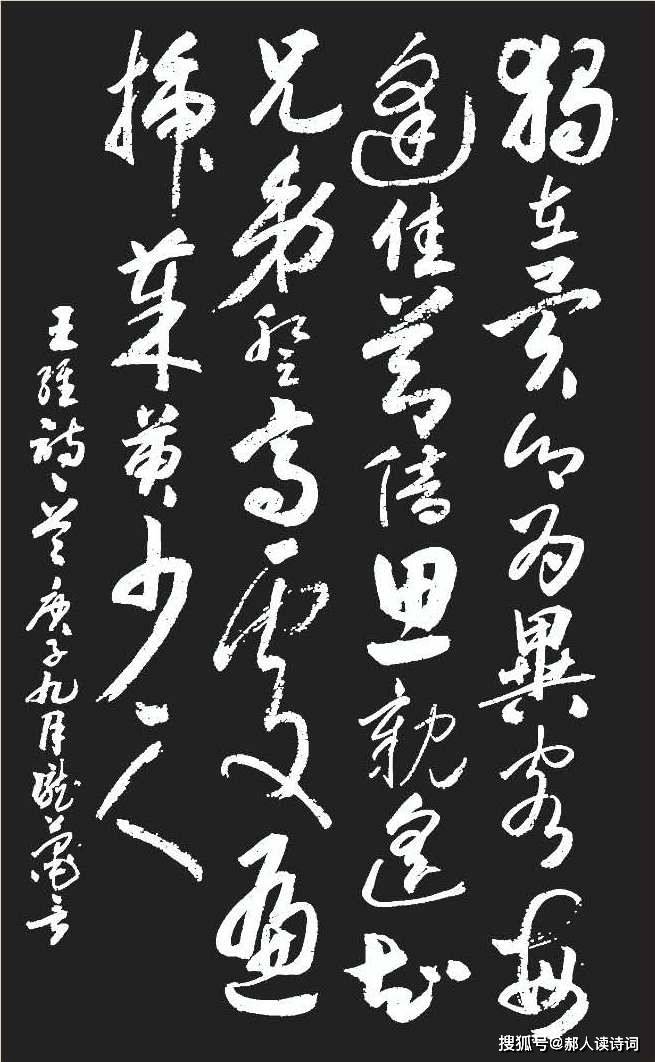 獨在異鄉為異客每
逢佳節倍思親遙知
兄弟登高處遍
插茱萸少一人
王維詩庚子九月
搜狐号@郝人读诗词